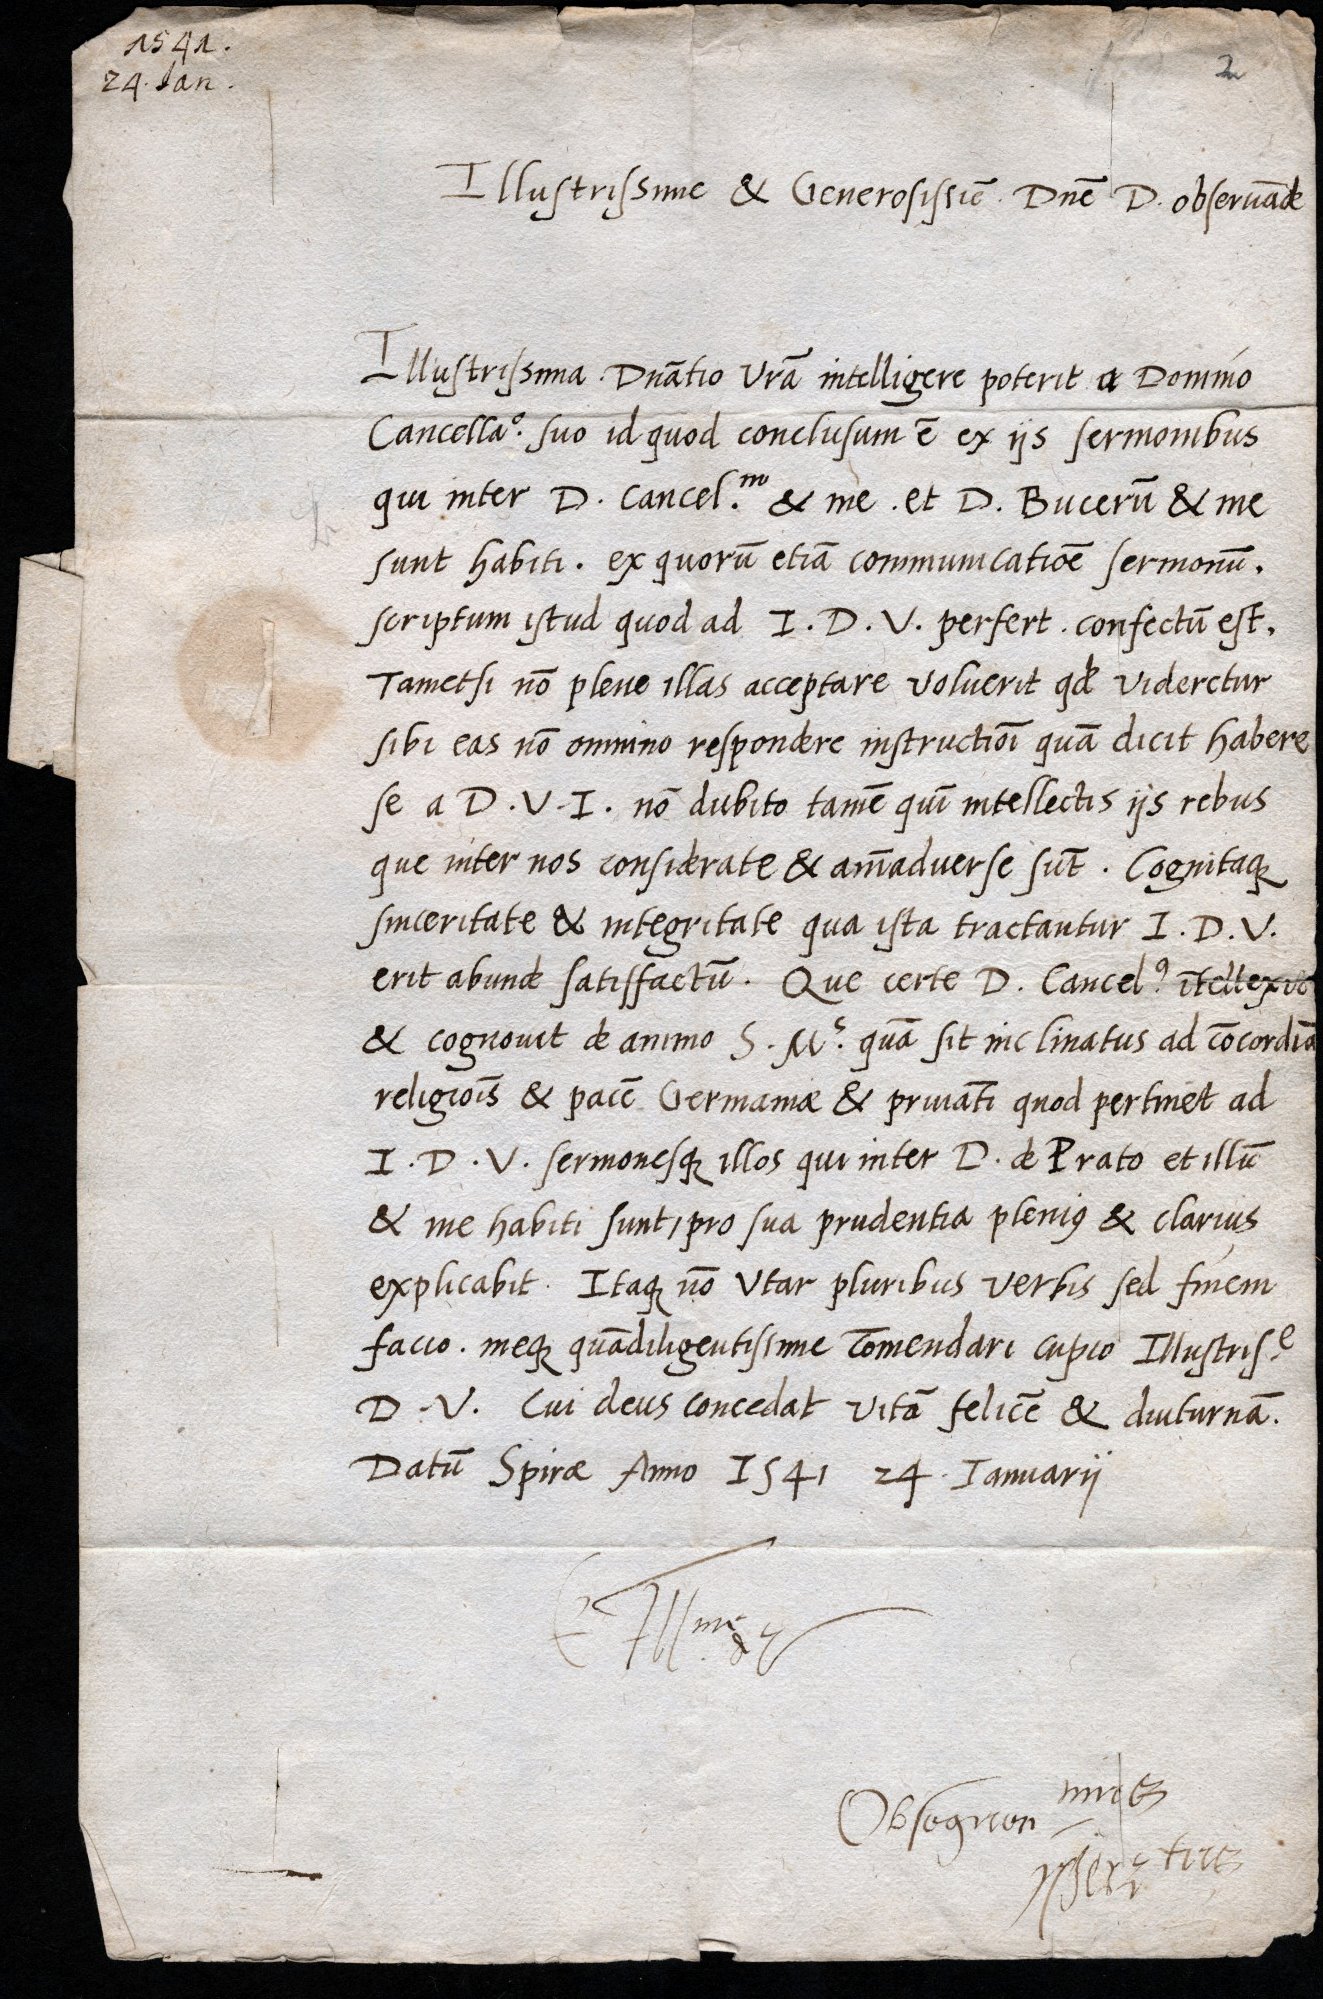 1541.
24. Jan.
2
Illustrissime & Generosissiē. Dnē D. obseruāde
Illustrissima. Dnātio Vrā intelligere poterit a Domino
Cancellaᵒ. suo id quod conclusum ē ex ijs sermonibus
qui inter D. Cancel.ᵐ & me. et D. Bucerū & me
sunt habiti. ex quorū etiā communicatiōe sermonū.
scriptum istud quod ad I. D. V. perfert. confectū est.
Tametsi nō plene illas acceptare voluerit qđ videretur
sibi eas nō omnino respondere instructiōi quā dicit habere
se a D. V. I. nō dubito tamē quī intellectis ijs rebus
que inter nos considerate & aīmaduerse sūt. Cognitaqꝫ
sinceritate & integritate qua ista tractantur I. D. V.
erit abunde satisfactū. Que certe D. Cancelꝰ. ītellexit
& cognouit de animo S. Mˢ. quā sit inclinatus ad cōcordiā
religiōis & pacē Germaniæ & priuatī quod pertinet ad
I. D. V. sermonesqꝫ illos qui inter D. de Prato et illū
& me habiti sunt, pro sua prudentia pleniꝰ & clarius
explicabit. Itaqꝫ nō Vtar pluribus verbis sed finem
facio. meqꝫ quādiligentissime cōmendari cupio Illustris.ᵉ
D. V. Cui deus concedat vitā felicē & diuturnā.
Datū Spiræ Anno 1541 24. Ianuarij
E Ill.ᵐᵉ